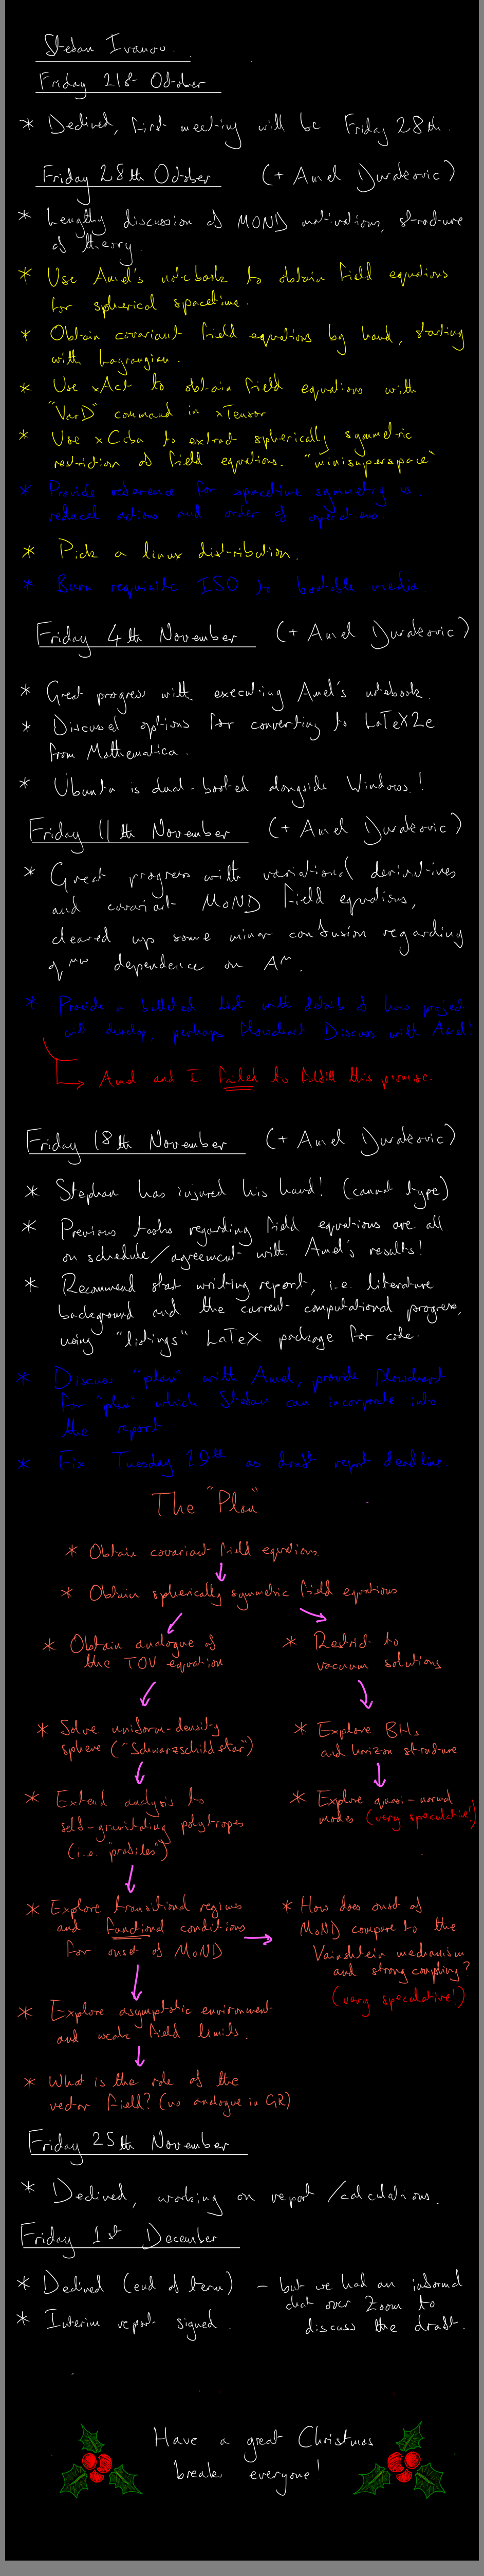 Stefan Ivanov.
Friday 21st October
* Declined, first meeting will be Friday 28th.
Friday 28th October (+ Amel Durakovic)
* Lengthy discussion of MOND motivations, structure
of theory.
* Use Amel's notebook to obtain field equations
for spherical spacetime.
* Obtain covariant field equations by hand, starting
with Lagrangian.
* Use xAct to obtain field equations with
"VarD" command in xTensor
* Use xCoba to extract spherically symmetric
restriction of field equations. "minisuperspace"
* Provide reference for spacetime symmetry vs.
reduced actions and order of operations
* Pick a linux distribution.
* Burn requisite ISO to bootable media
Friday 4th November (+ Amel Durakovic)
* Great progress with executing Amel's notebook.
* Discussed options for converting to LaTeX2e
from Mathematica.
* Ubuntu is dual-booted alongside Windows!
Friday 11th November (+ Amel Durakovic)
* Great progress with variational derivatives
and covariant MOND field equations,
cleared up some minor confusion regarding
q^μν dependence on A^μ.
* Provide a bulleted list with details of how project
will develop, perhaps flowchart. Discuss with Amel!
Amel and I failed to fulfill this promise.
Friday 18th November (+ Amel Durakovic)
* Stephan has injured his hand! (cannot type)
* Previous tasks regarding field equations are all
on schedule/agreement with Amel's results!
* Recommend start writing report, i.e. literature
background and the current computational progress,
using "listings" LaTeX package for code.
* Discuss "plan" with Amel, provide flowchart
for "plan" which Stefan can incorporate into
the report
* Fix Tuesday 29th as draft report deadline
The "Plan"
* Obtain covariant field equations.
* Obtain spherically symmetric field equations
* Obtain analogue of
the TOV equation
* Restrict to
vacuum solutions
* Solve uniform-density
sphere ("Schwarzschild star")
* Explore BHs
and horizon structure
* Extend analysis to
self-gravitating polytropes
(i.e. "profiles")
* Explore quasi-normal
modes (very speculative!)
* Explore transitional regimes
and functional conditions
for onset of MOND
* How does onset of
MOND compare to the
Vainshtein mechanism
and strong coupling?
(very speculative!)
* Explore asymptotic environment
and weak field limits.
* What is the role of the
vector field? (no analogue in GR)
Friday 25th November
* Declined, working on report/calculations.
Friday 1st December
* Declined (end of term) – but we had an informal
chat over Zoom to
discuss the draft.
* Interim report signed.
Have a great Christmas
break everyone!